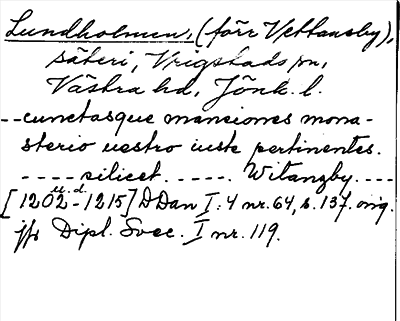 Lundholmen, (förr Vettansby),
säteri, Vrigstads sn,
Västra hd, Jönk. l.
-- cunctasque mansiones mona-
sterio uestro iuste pertinentes.
---- silicet. ----- Witanzby. ----
[1202 u.d. - 1215] DDan I:4 nr. 64, s. 137. orig.
jfr Dipl. Svec. I nr. 119.